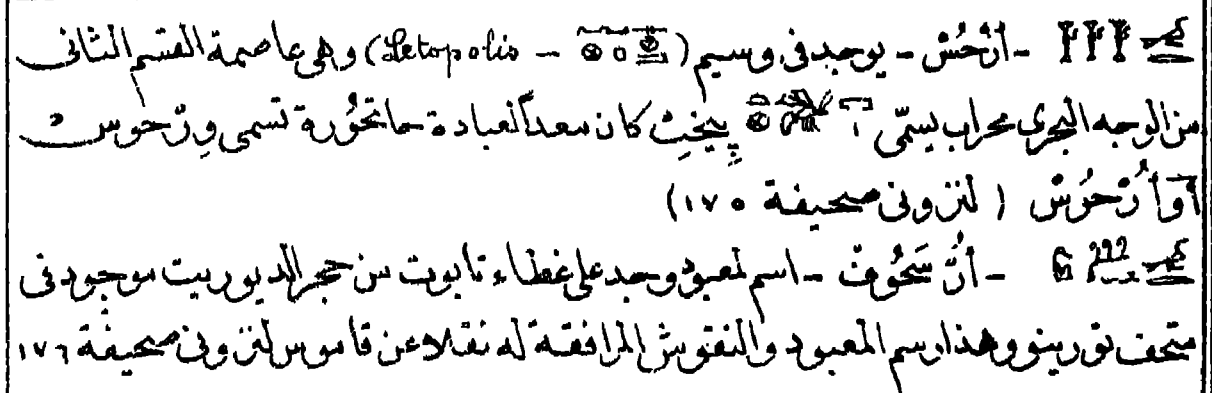 - أُرْحُسْ - يوجد فى وسيم (Letopolis -) وهى عاصمة القسم الثانى
من الوجه البحرى محراب يسمّى پِيخِتْ كان معداً لعبادة حاتحُورة تسمى وِرْحوس
أوأُرْحُسْ (لنزونى صحيفة ١٧٥)
- اسم لمعبود وجد على غطاء تابوت من حجر الديوريت موجود فى
متحف تورينو وهذا رسم المعبود والنقوش المرافقة له نقلا عن قاموس لنزونى صحيفة ١٧٦